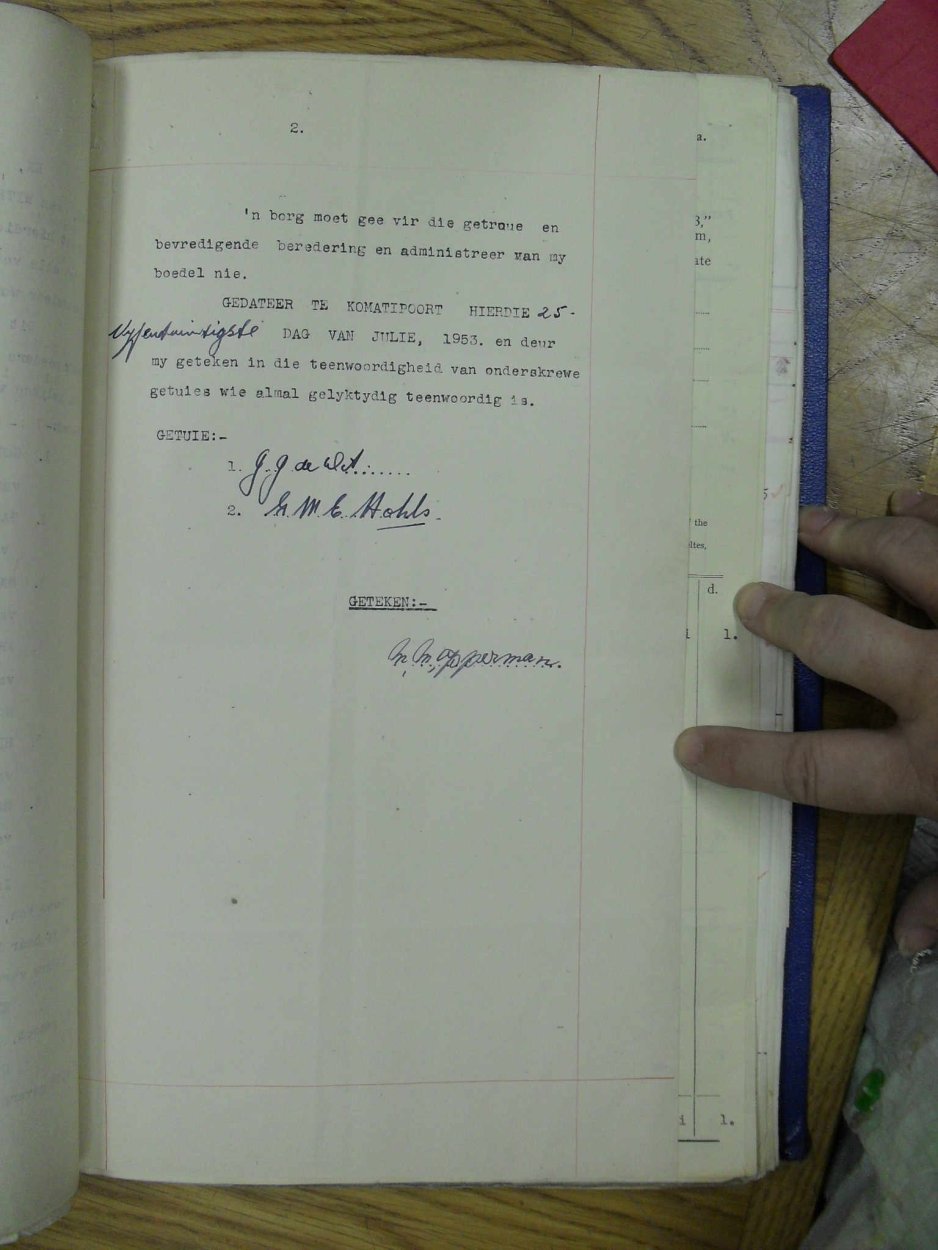 2.
'n borg moet gee vir die getroue en
bevredigende beredering en administreer van my
boedel nie.
GEDATEER TE KOMATIPOORT HIERDIE 25-
Vyfentwintigste DAG VAN JULIE, 1953. en deur
my geteken in die teenwoordigheid van onderskrewe
getuies wie almal gelyktydig teenwoordig is.
GETUIE:-
1. G. G de Wit......
2. M E Hohls.
GETEKEN:-
Opperman.
a.
3,"
m,
ate
the
ltes,
d.
i l.
i l.